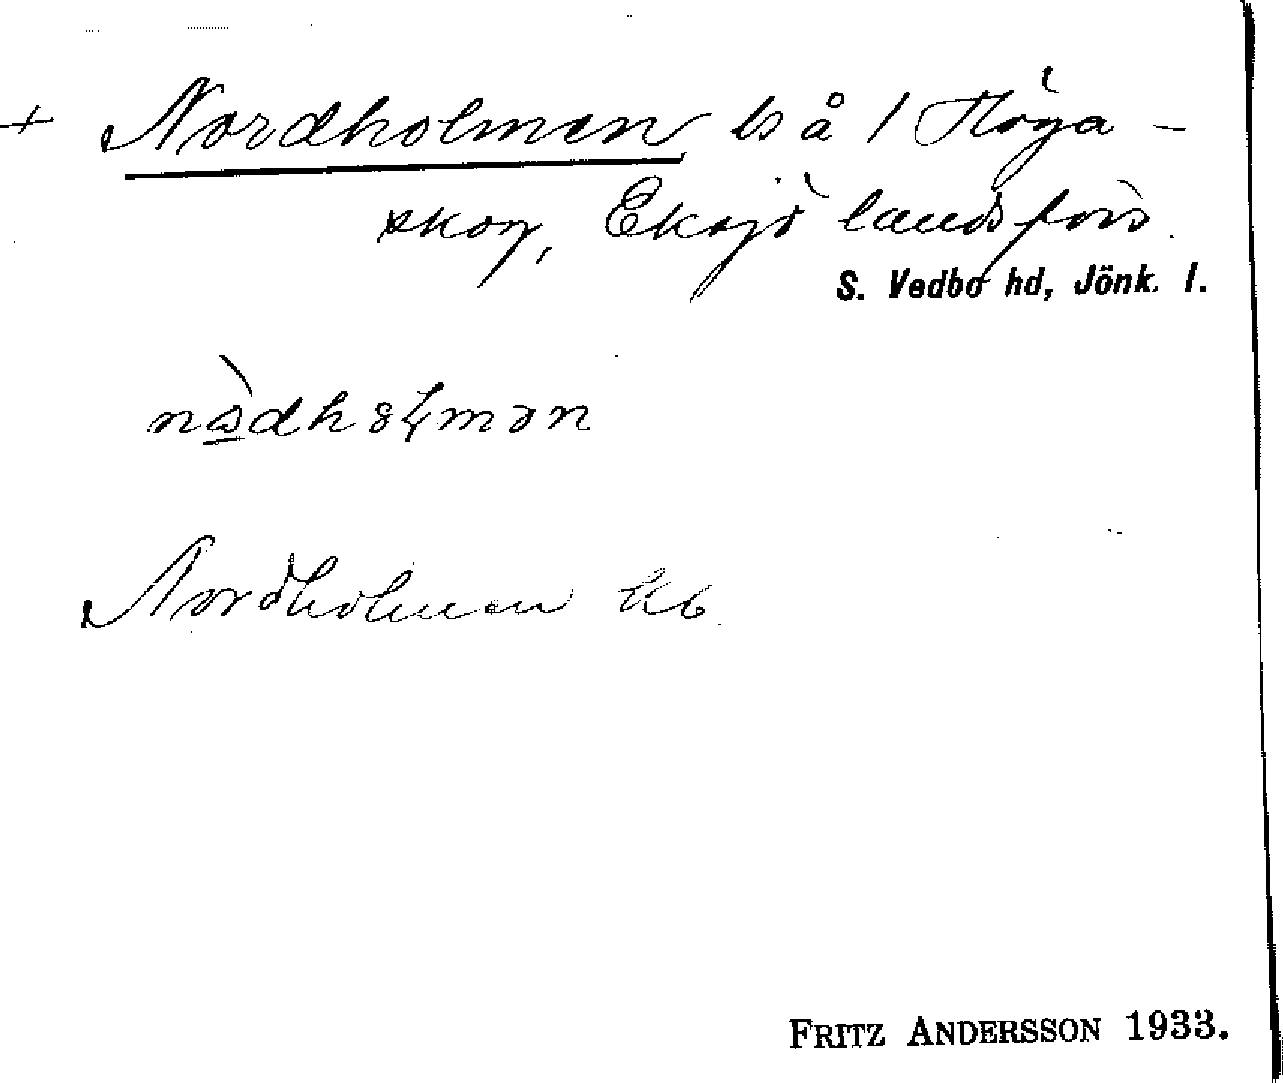 + Nordholmen ls å / Höga-
skog, Eksjö landsförs.
S. Vedbo hd, Jönk. l.
nɷ̠̀dhɔɽmən
Nordholmen kb
FRITZ ANDERSSON 1933.